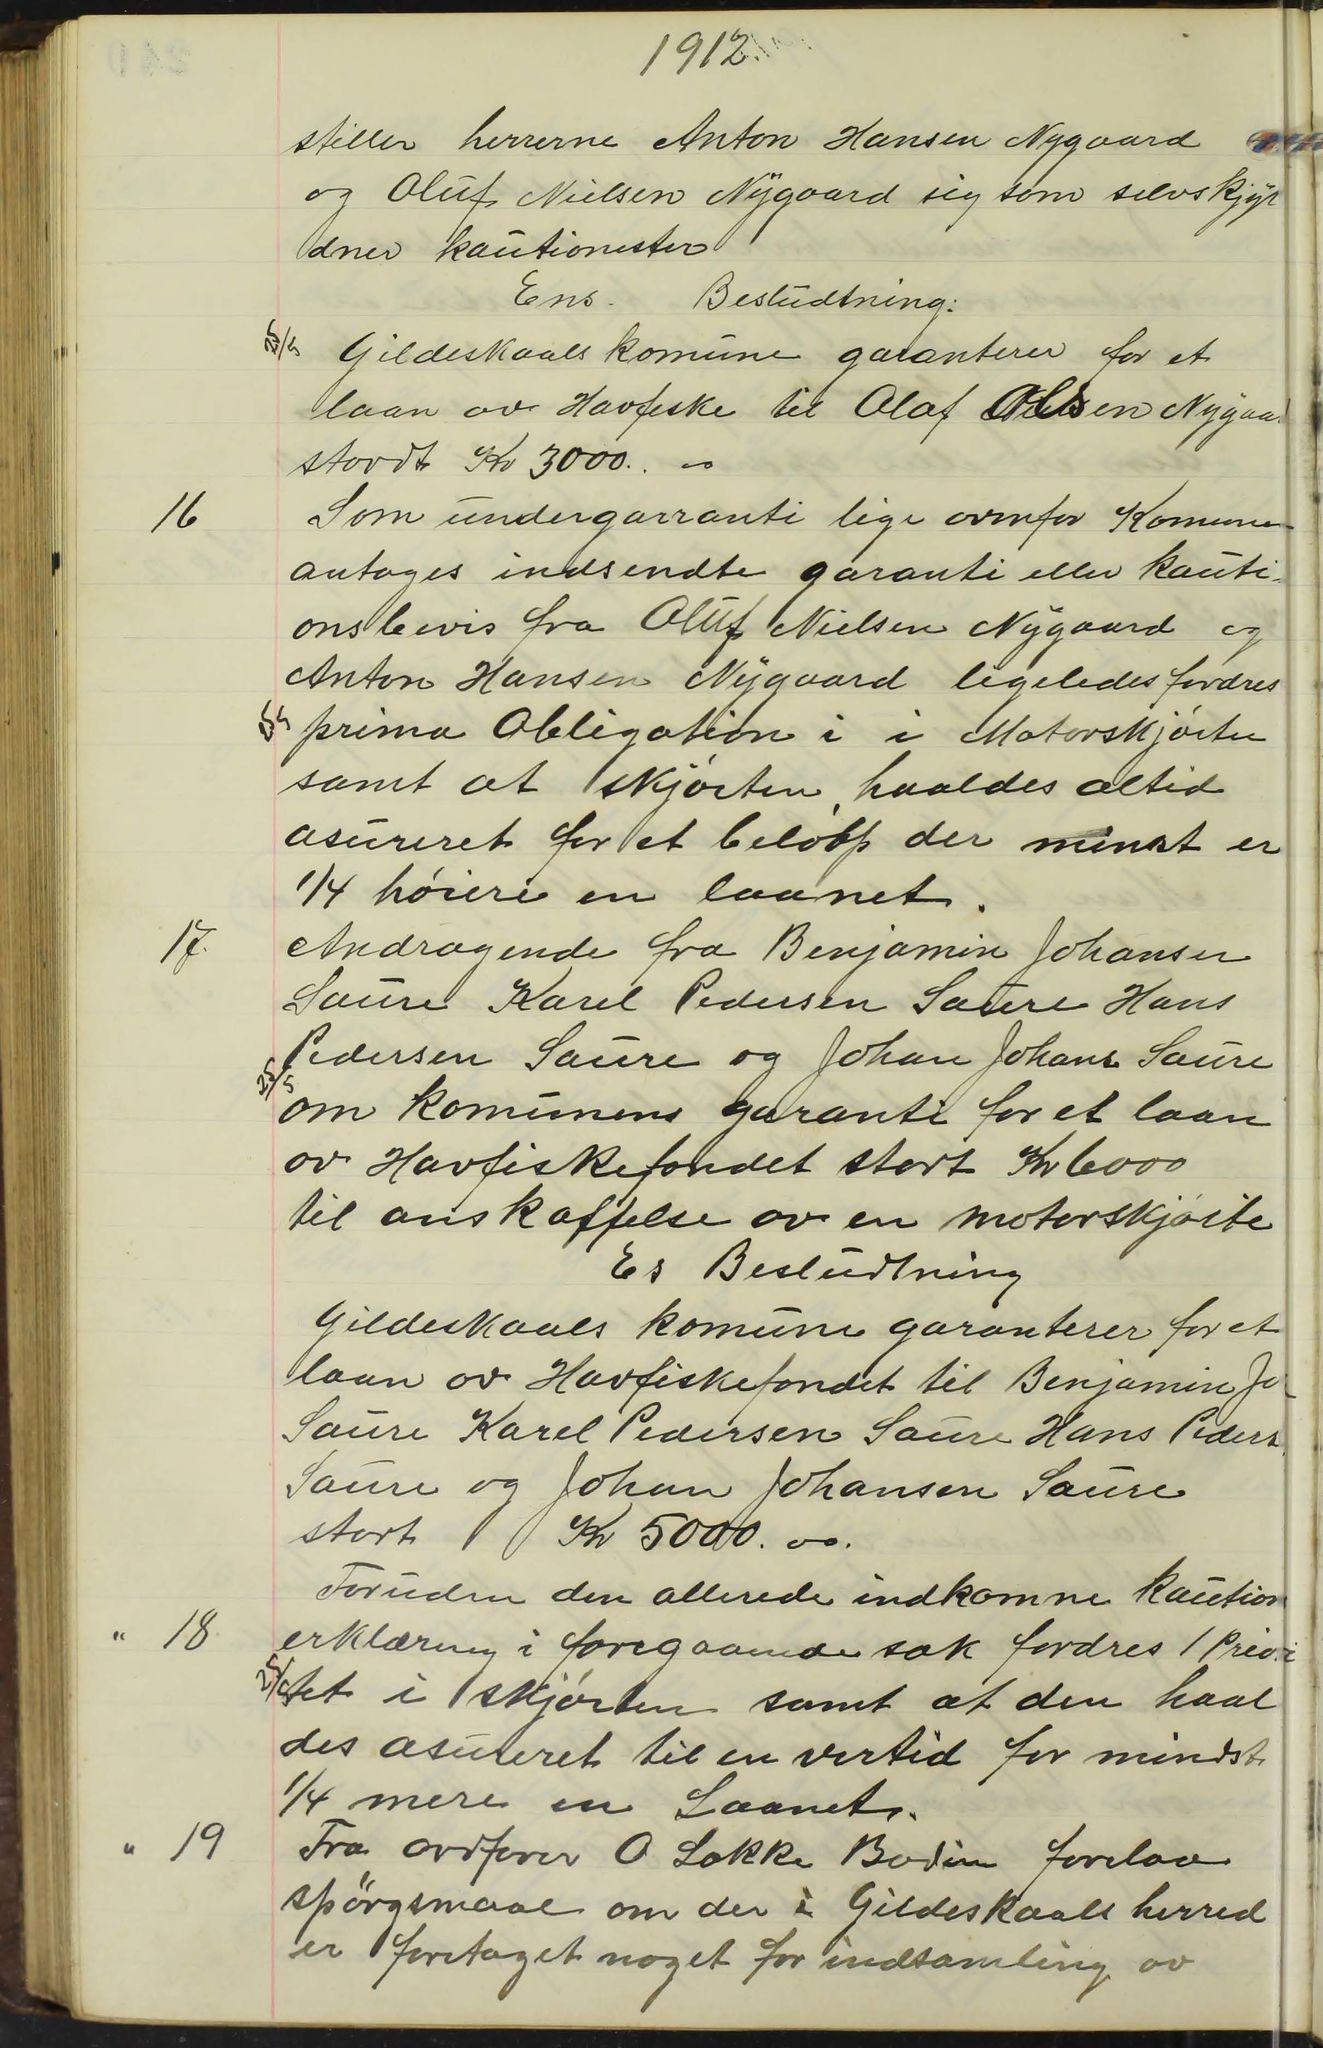 1912.
stiller herrerne Anton Hansen Nygaard
og Oluf Nielsen Nygaard sig som selvskjyl
dner kautionister
Ens. Besludtning:
25/5 Gildeskaals komune garanterer for et
laan av Havfiske til Olaf Olsen Nygaa
stordt Kr 3000.
16 Som undergarranti lige ovnfor Komune
antages indsendte garanti eller kauti-
onsbevis fra Oluf Nielsen Nygaard og
Anton Hansen Nygaard ligeledes fordres
prima Obligation i i Motorskjøiten
samt at skjøiten haaldes altid
asureret for et beløbp der minst er
1/4 høiere en laanet.
17. Andragende fra Benjamin Johansen
Saure Karel Pedersen Saure Hans
Pedersen Saure og Johan Johans Saure
25/5 om komunens garanti for et laan
av Havfiskefondet stort Kr 6000
til anskaffelse av en motorskjøite
Es Besludtning
Gildeskaals komune garanterer for et
laan av Havfiskefondet til Benjamin Jo
Saure Karel Pedersen Saure Hans Peders
Saure og Johan Johansen Saure
stort Kr 5000. oo.
Foruden den allerede indkomne kaution
" 18 erklæring i foregaaende sak fordres 1 Priori
25/5 tet i skjøiten samt at den haal
des asureret til en vertid for mindst
1/4 mere en Laanet.
" 19 Fra ordfører O Løkke Bodin forelaa
spörgsmaal om der i Gildeskaals herred
er foretaget noget for indsamling av